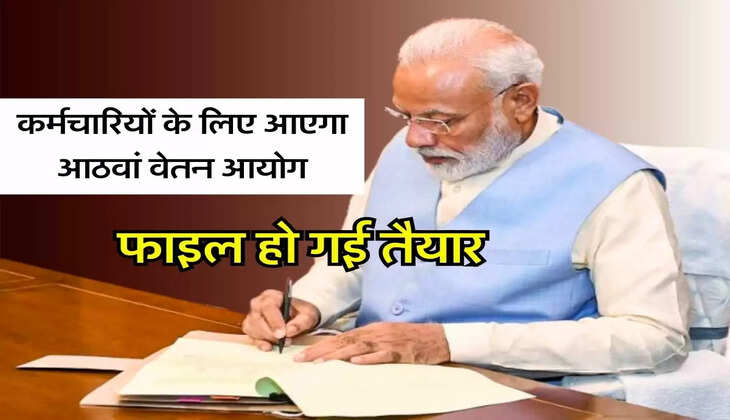 कर्मचारियों के लिए आएगा
आठवां वेतन आयोग
फाइल हो गई तैयार